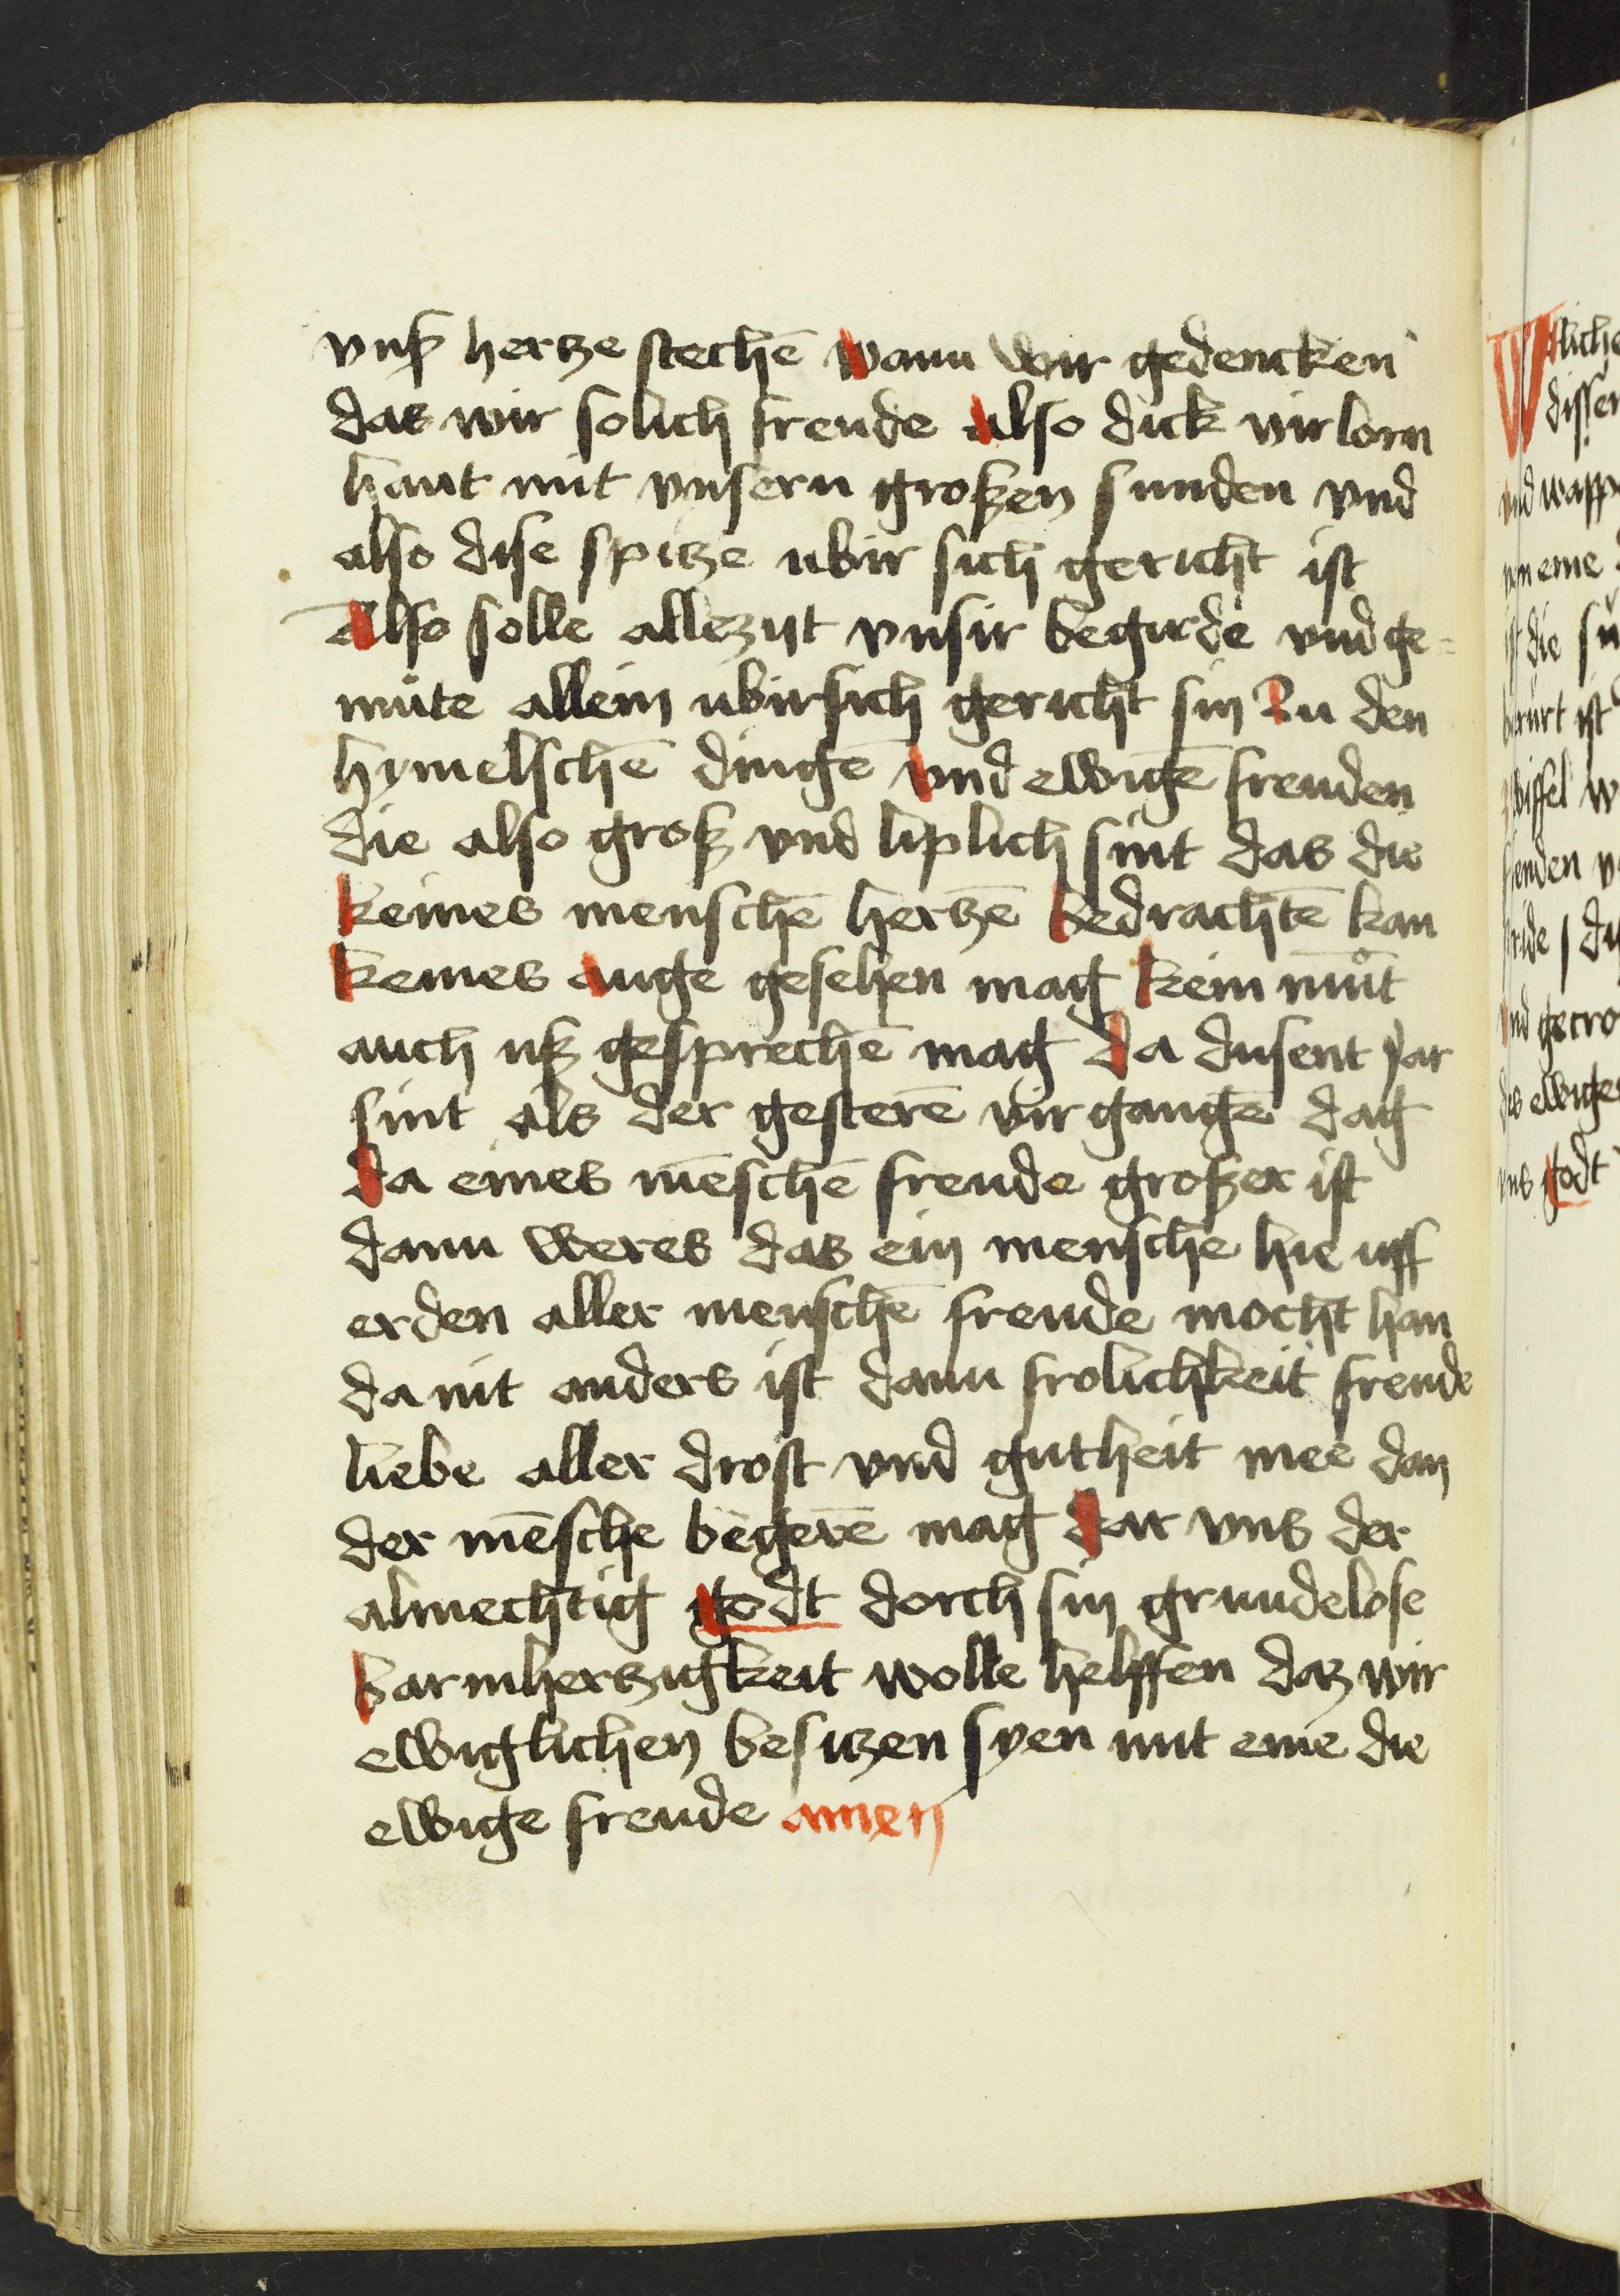 vnß hertze stechē wann wir gedencken
das wir solich freude also dick virlorn
hant mit vnsern großen sunden vnd
also dise spitze ubir sich gericht ist
Also solle allezijt vnsir begirde vnd ge=
müte allein ubirsich gericht sin Zu den
hymelschē dingē vnd ewigē freuden
die also groß vnd liplich sint das die
keines menschē hertzē bedrachtē kan
keines auge gesehen mag kein mūt
auch uß gesprechē mag da dusent Jar
sint als der gesterē virgangē dag
da eines mēschē freude großer ist
dann weres das ein mensche hie uff
erden aller menschē freude mocht han
da nit anders ist dann frolichkeit freude
liebe aller drost vnd gutheit mee dan
der mēsche begerē mag dar vns der
almechtig godt dorch sin grundelose
barmhertzigkeit wolle helffen daz wir
ewiglichen besitzen syen mit eine die
ewige freude amen